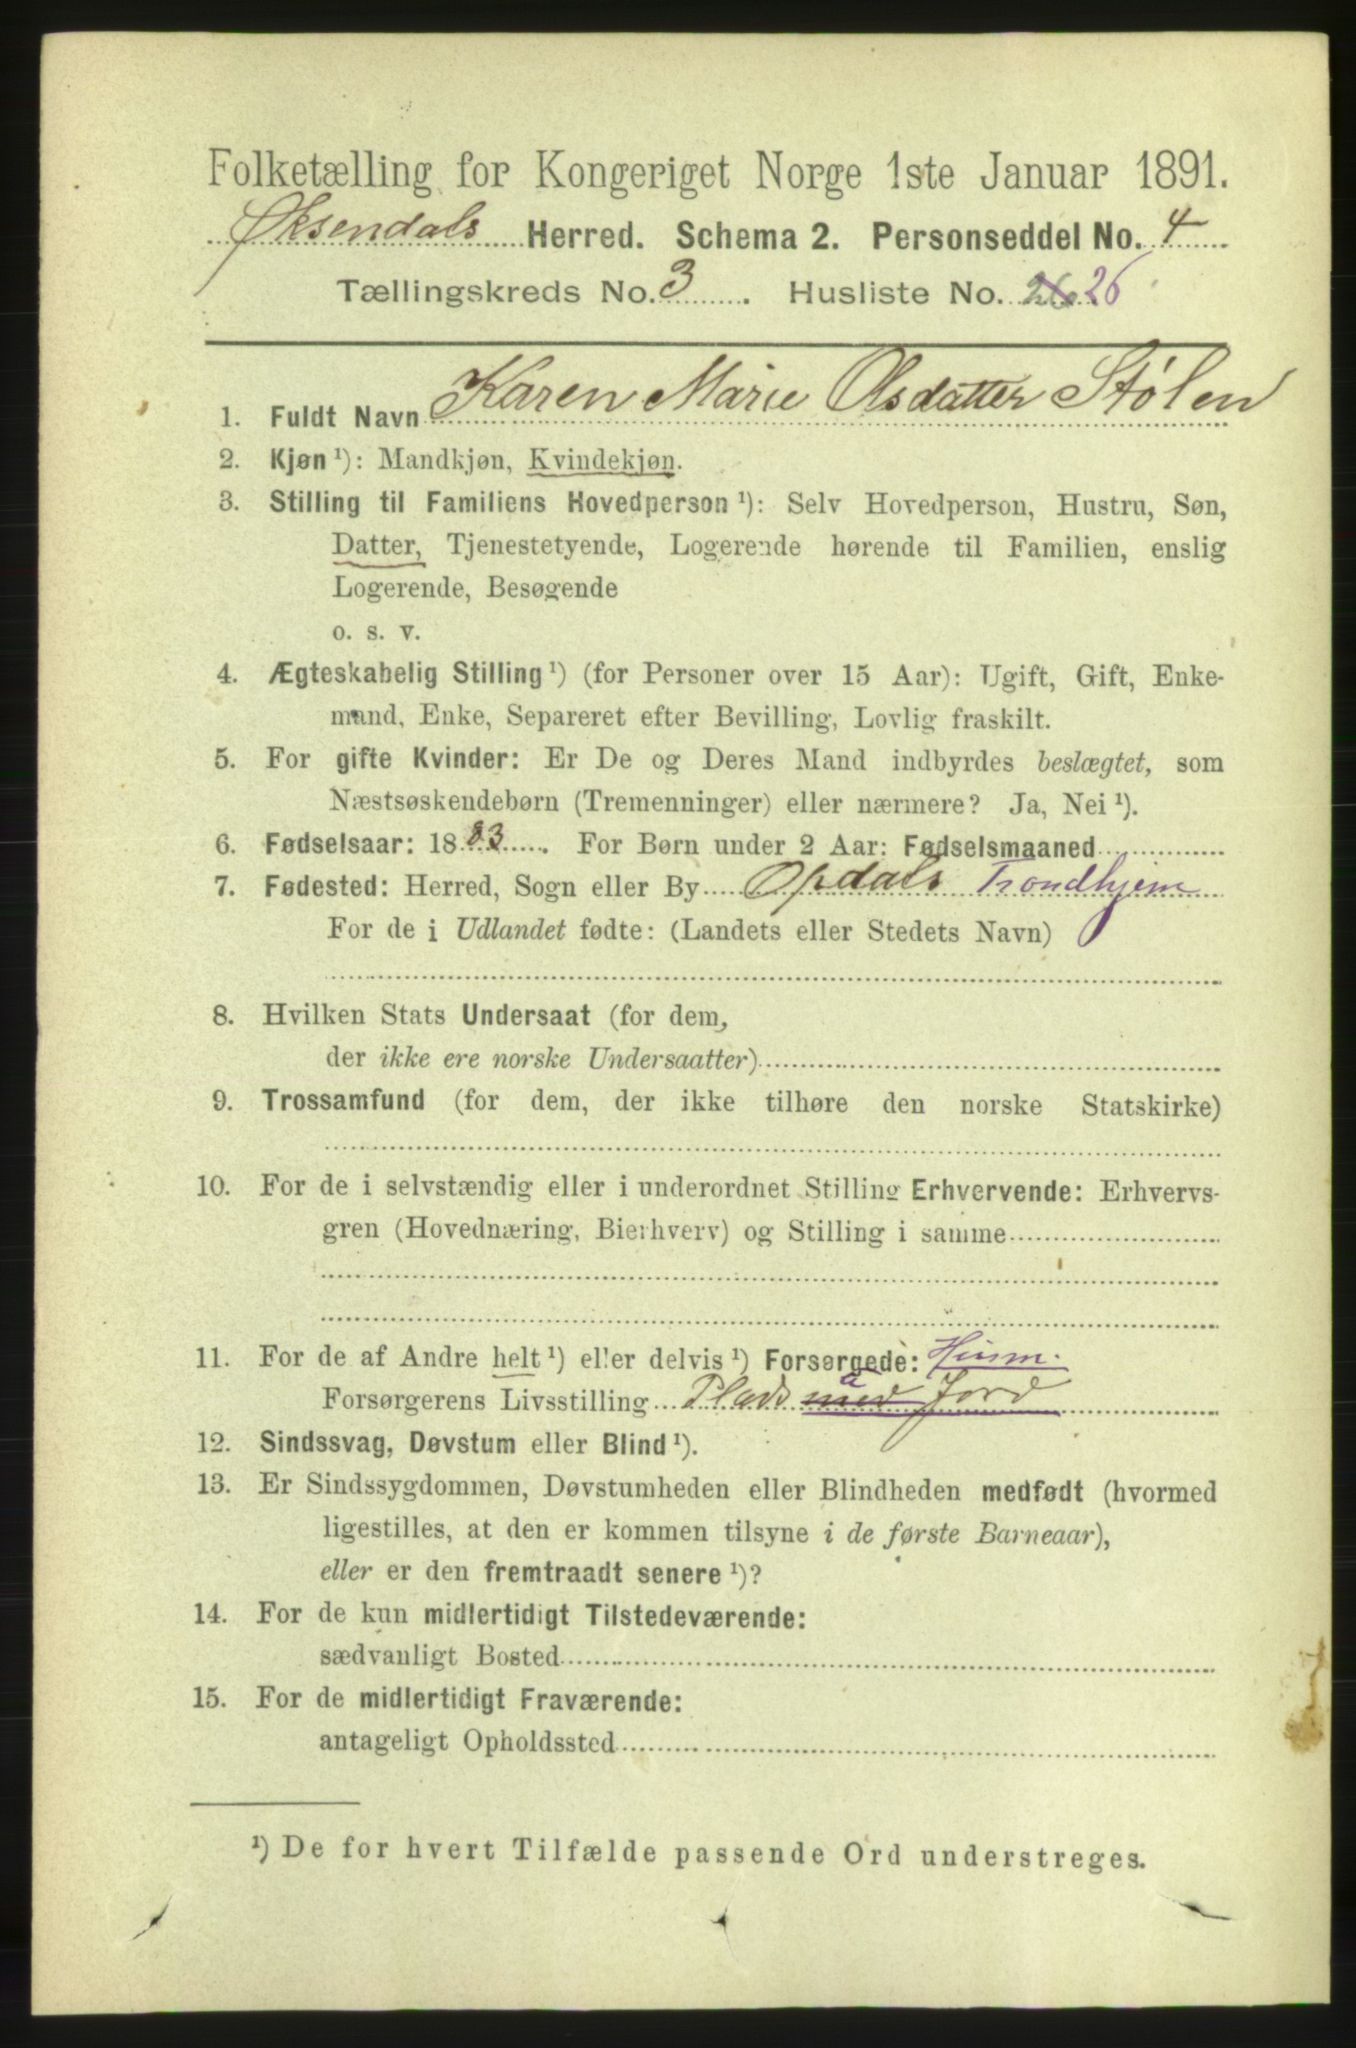 Folketælling for Kongeriget Norge 1ste Januar 1891.
Øksendals Herred. Schema 2. Personseddel No. 4
Tællingskreds No. 3. Husliste No. 26 26
1. Fuldt Navn Karen Marie Olsdatter Stølen
2. Kjøn ¹): Mandkjøn, Kvindekjøn.
3. Stilling til Familiens Hovedperson ¹): Selv Hovedperson, Hustru, Søn,
Datter, Tjenestetyende, Logerende hørende til Familien, enslig
Logerende, Besøgende
o. s. v.
4. Ægteskabelig Stilling ¹) (for Personer over 15 Aar): Ugift, Gift, Enke-
mand, Enke, Separeret efter Bevilling, Lovlig fraskilt.
5. For gifte Kvinder: Er De og Deres Mand indbyrdes beslægtet, som
Næstsøskendebørn (Tremenninger) eller nærmere? Ja, Nei ¹).
6. Fødselsaar: 1883. For Børn under 2 Aar: Fødselsmaaned
7. Fødested: Herred, Sogn eller By Opdals Trondhjem
For de i Udlandet fødte: (Landets eller Stedets Navn)
8. Hvilken Stats Undersaat (for dem,
der ikke ere norske Undersaatter)
9. Trossamfund (for dem, der ikke tilhøre den norske Statskirke)
10. For de i selvstændig eller i underordnet Stilling Erhvervende: Erhvervs-
gren (Hovednæring, Bierhverv) og Stilling i samme
11. For de af Andre helt ¹) eller delvis ¹) Forsørgede: Husm.
Forsørgerens Livsstilling Plads med Jord
12. Sindssvag, Døvstum eller Blind ¹).
13. Er Sindssygdommen, Døvstumheden eller Blindheden medfødt (hvormed
ligestilles, at den er kommen tilsyne i de første Barneaar),
eller er den fremtraadt senere ¹)?
14. For de kun midlertidigt Tilstedeværende:
sædvanligt Bosted
15. For de midlertidigt Fraværende:
antageligt Opholdssted
¹) De for hvert Tilfælde passende Ord understreges.